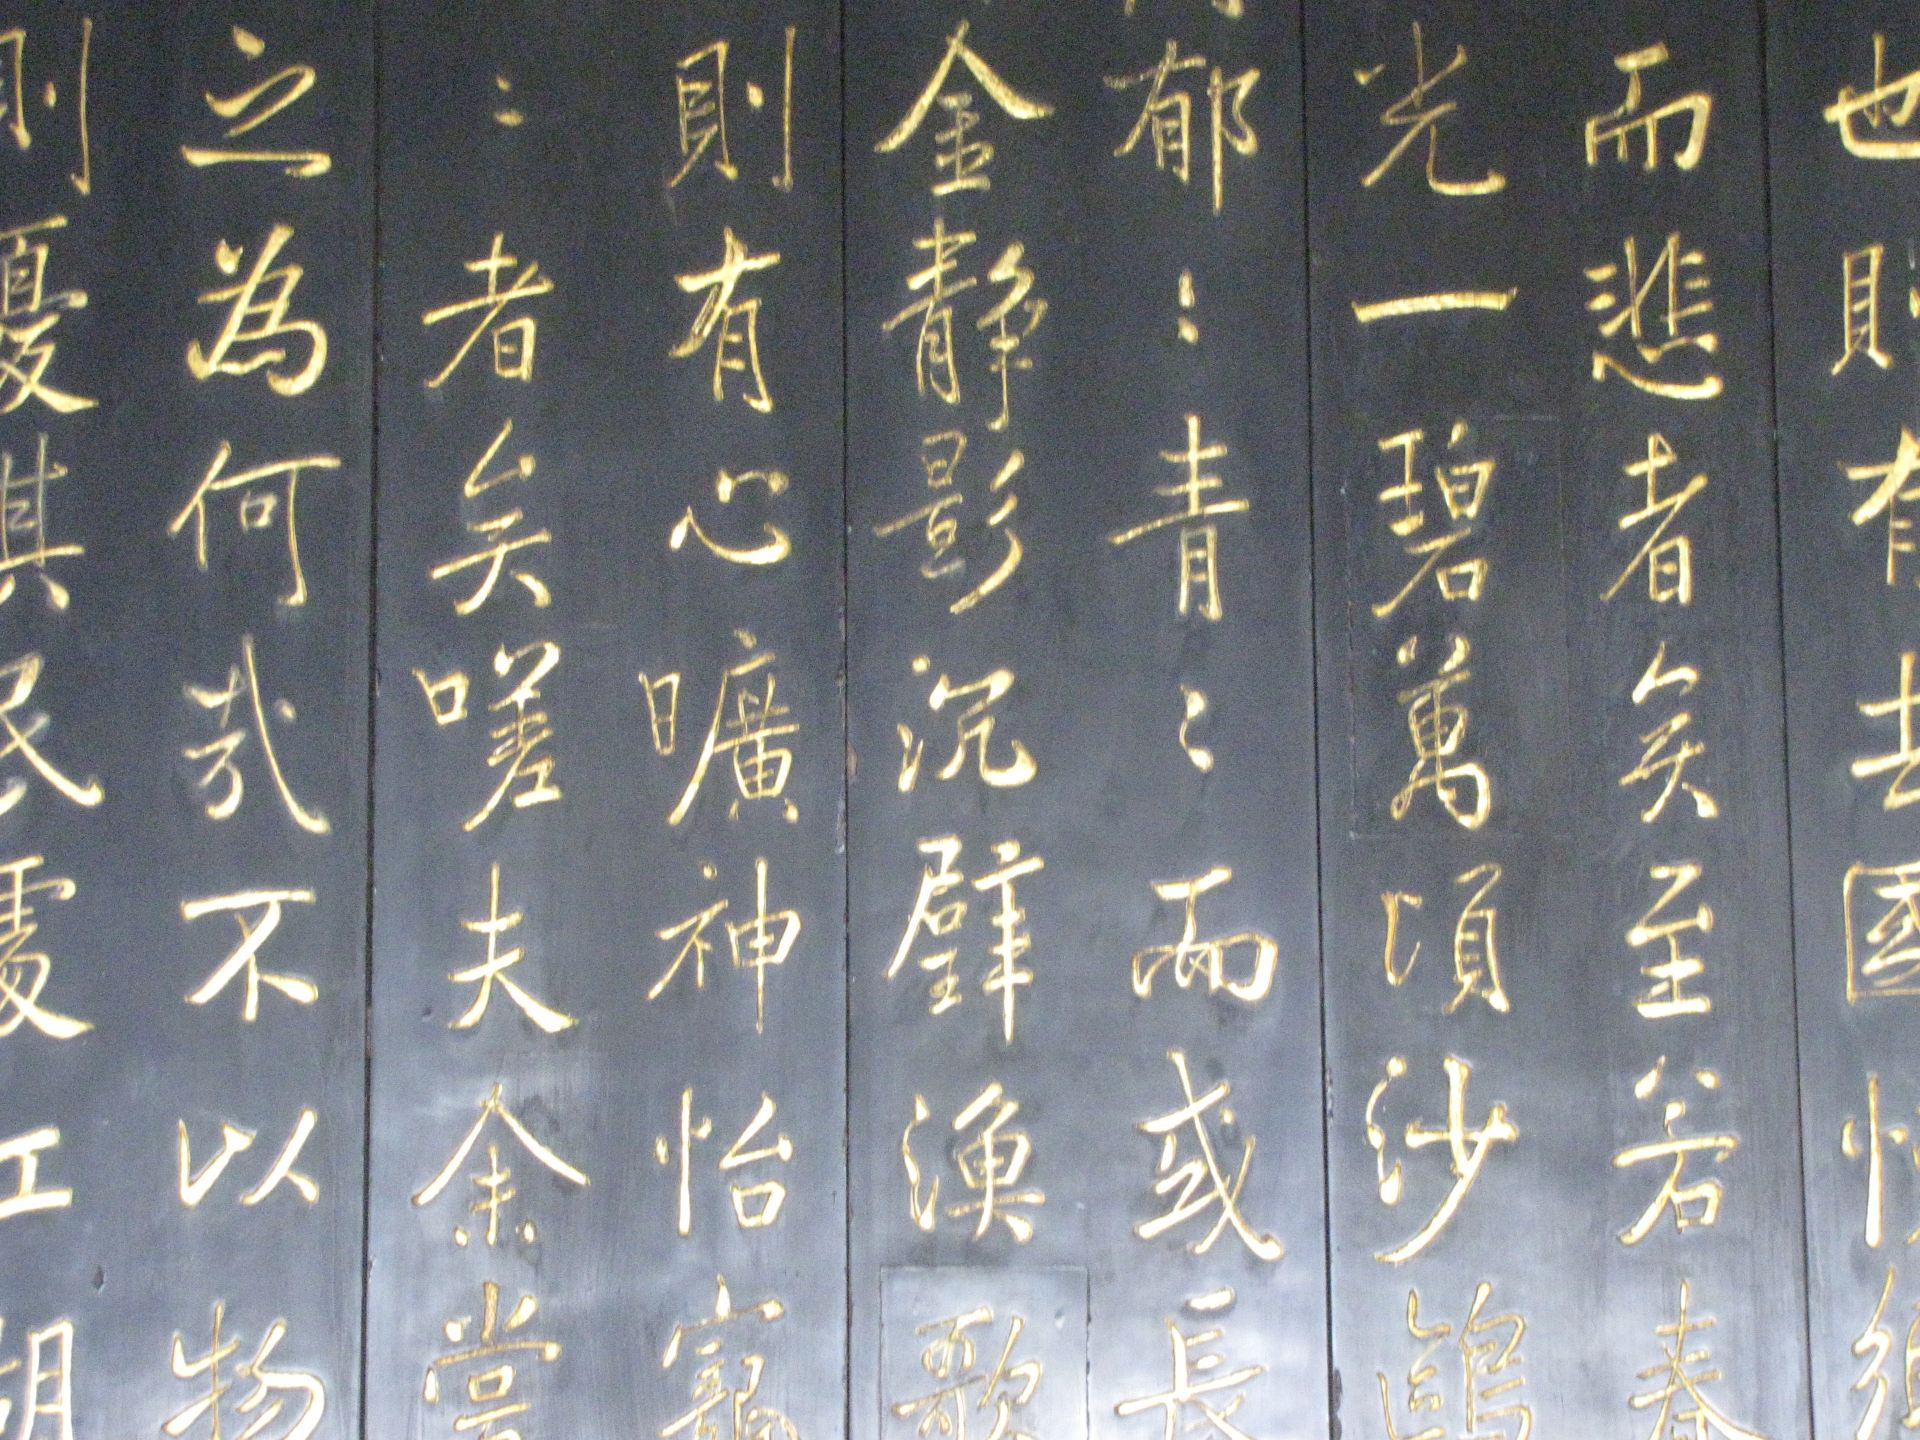 也則有去國懷鄉
而悲者矣至若春
光一碧萬頃沙鷗
郁〻青〻而或長
金靜影沉璧漁歌
則有心曠神怡寵
〻者矣嗟夫余嘗
之為何哉不以物
則憂其民處江湖